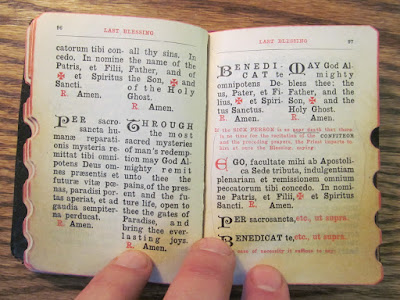 LAST BLESSING
catorum tibi con-
cedo. In nomine
Patris, et Filii,
✠ et Spiritus
Sancti.
R. Amen.
PER sacro-
sancta hu-
manæ reparati-
onis mysteria re-
mittat tibi omni-
potens Deus om-
nes præsentis et
futuræ vitæ pœ-
nas, paradisi por-
tas aperiat, et ad
gaudia sempiter-
na perducat.
R. Amen.
all thy sins. In
the name of the
Father, and of
the Son, ✠ and
of the Holy
Ghost.
R. Amen.
THROUGH
the most
sacred mysteries
of man's redemp-
tion may God Al-
mighty remit
unto thee the
pains of the pres-
ent and the fu-
ture life, open to
thee the gates of
Paradise, and
bring thee ever-
lasting joys.
R. Amen.
LAST BLESSING
BENEDI-
CAT te
omnipotens De-
us, Pater, et Fi-
lius, ✠ et Spiri-
tus Sanctus.
R. Amen.
MAY God Al-
mighty
bless thee; the
Father, and the
Son, ✠ and the
Holy Ghost.
R. Amen.
If the SICK PERSON is so near death that there
is no time for the recitation of the CONFITEOR
and the preceding prayers, the Priest imparts to
him at once the Blessing, saying:
EGO, facultate mihi ab Apostoli-
ca Sede tributa, indulgentiam
plenariam et remissionem omnium
peccatorum tibi concedo. In nomi-
ne Patris, et Filii, ✠ et Spiritus
Sancti. R. Amen.
PER sacrosancta, etc., ut supra.
BENEDICAT te, etc., ut supra.
case of necessity it suffices to say: